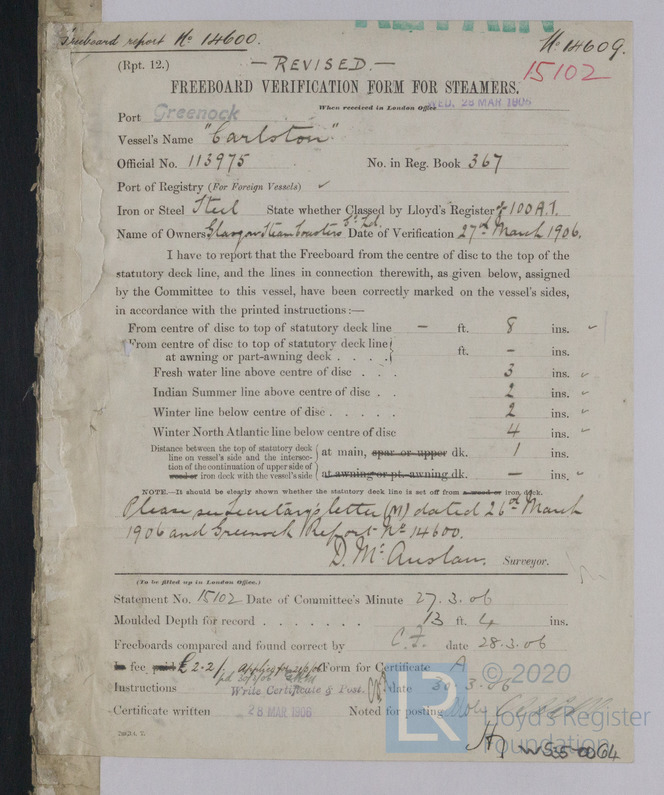 Freeboard report No 14600.
No 14609.
(Rpt. 12.)
— REVISED. —
15102
FREEBOARD VERIFICATION FORM FOR STEAMERS.
When received in London Office WED. 28 MAR 1906
Port Greenock
Vessel's Name "Carlston"
Official No. 113975 No. in Reg. Book 367
Port of Registry (For Foreign Vessels) ✓
Iron or Steel Steel State whether Classed by Lloyd's Register 100A.1.
Name of Owners Glasgow Steam Coasters Co Ld. Date of Verification 27th March 1906.
I have to report that the Freeboard from the centre of disc to the top of the
statutory deck line, and the lines in connection therewith, as given below, assigned
by the Committee to this vessel, have been correctly marked on the vessel's sides,
in accordance with the printed instructions:—
From centre of disc to top of statutory deck line — ft. 8 ins. ✓
From centre of disc to top of statutory deck line
at awning or part-awning deck . . . . ft. – ins.
Fresh water line above centre of disc . . . 3 ins. ✓
Indian Summer line above centre of disc . . 2 ins. ✓
Winter line below centre of disc . . . . . 2 ins. ✓
Winter North Atlantic line below centre of disc 4 ins. ✓
Distance between the top of statutory deck
line on vessel's side and the intersec-
tion of the continuation of upper side of
wood or iron deck with the vessel's side
at main, spar or upper dk. 1 ins.
at awning or pt.-awning dk. — ins. ✓
NOTE.—It should be clearly shown whether the statutory deck line is set off from a wood or iron deck.
Please see Secretary's letter (M) dated 26th March
1906 and Greenock Report No 14600.
D. McAuslan. Surveyor.
(To be filled up in London Office.)
Statement No. 15102 Date of Committee's Minute 27.3.06
Moulded Depth for record . . . . . . . 13 ft. 4 ins.
Freeboards compared and found correct by C.F. date 28.3.06
fee paid £2-2/- Form for Certificate A
Instructions Write Certificate & Post. date 30.3.06
Certificate written 28 MAR 1906 Noted for posting
© 2020
LR
Lloyd's Register
Foundation
W535-0064